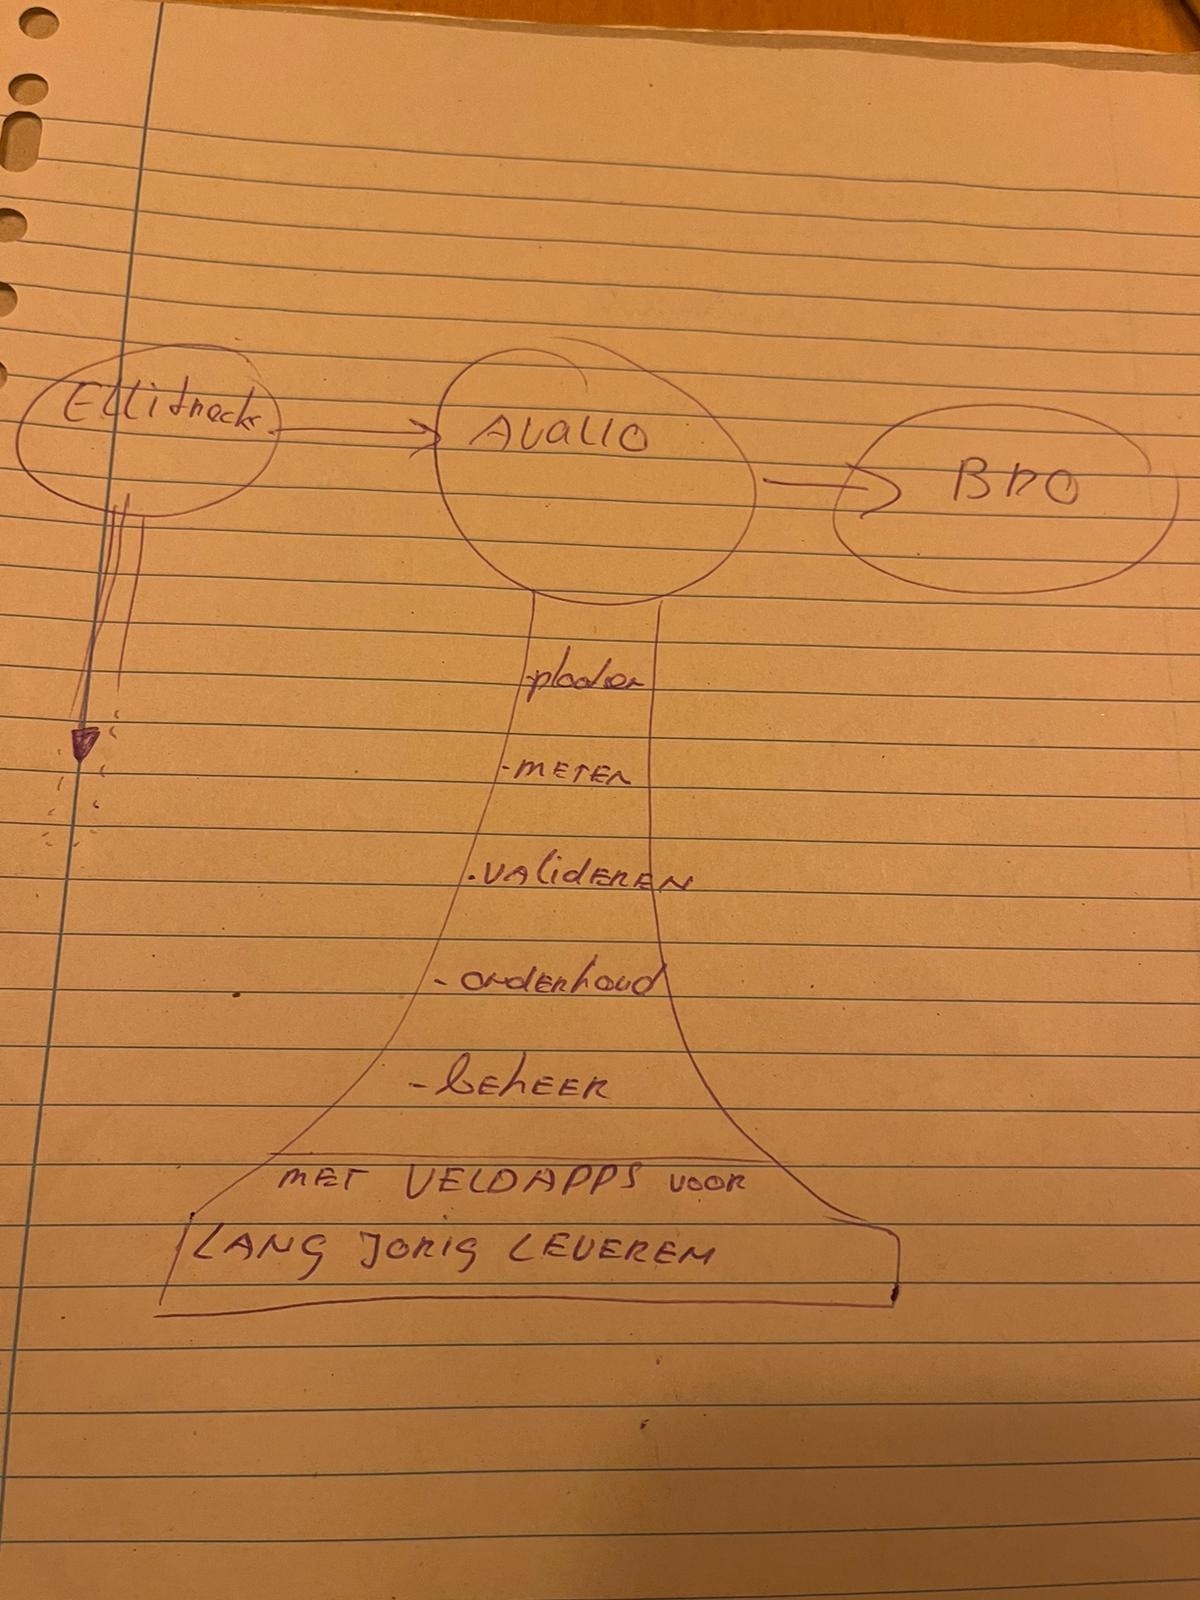 Ellitrack
AVALLO
BRO
-meten
-valideren
-onderhoud
-beheer
MET VELDAPPS VOOR
LANG JORIG LEVEREM